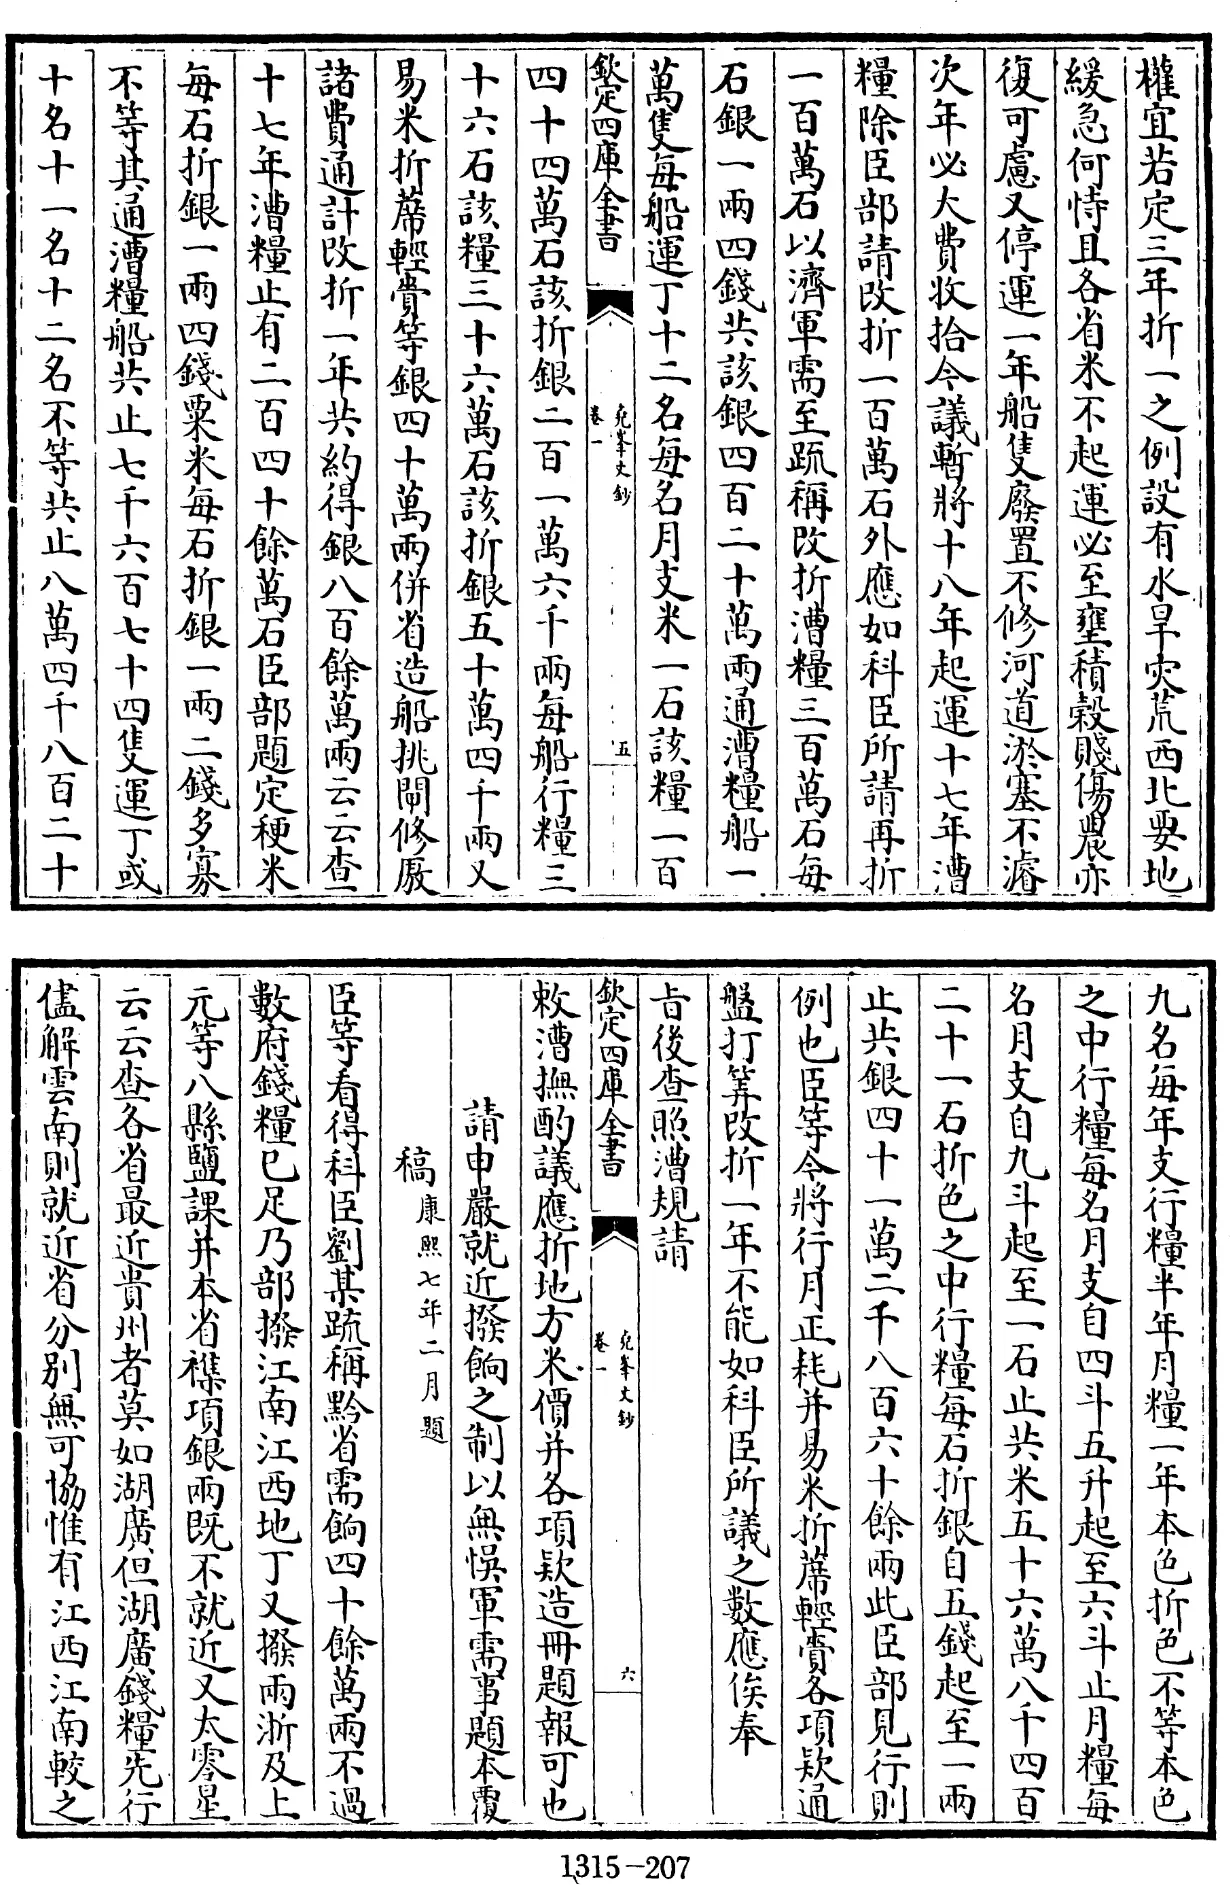 權宜若定三年折一之例設有水旱灾荒西北要地
緩急何恃且各省米不起運必至壅積榖賤傷農亦
復可慮又停運一年船隻廢置不修河道淤塞不濬
次年必大費收拾今議暫將十八年起運十七年漕
糧除臣部請改折一百萬石外應如科臣所請再折
一百萬石以濟軍需至疏稱改折漕糧三百萬石每
石銀一兩四錢共該銀四百二十萬兩通漕糧船一
萬隻每船運丁十二名每名月支米一石該糧一百
欽定四庫全書
兗峯文鈔
卷一
五
四十四萬石該折銀二百一萬六千兩每船行糧三
十六石該糧三十六萬石該折銀五十萬四千兩又
易米折蓆輕賫等銀四十萬兩併省造船挑閘修廒
諸費通計改折一年共約得銀八百餘萬兩云云查
十七年漕糧止有二百四十餘萬石臣部題定稉米
每石折銀一兩四錢粟米每石折銀一兩二錢多寡
不等其通漕糧船共止七千六百七十四隻運丁或
十名十一名十二名不等共止八萬四千八百二十
九名每年支行糧半年月糧一年本色折色不等本色
之中行糧每名月支自四斗五升起至六斗止月糧每
名月支自九斗起至一石止共米五十六萬八千四百
二十一石折色之中行糧每石折銀自五錢起至一兩
止共銀四十一萬二千八百六十餘兩此臣部見行則
例也臣等今將行月正耗并易米折蓆輕賫各項欵通
盤打筭改折一年不能如科臣所議之數應俟奉
旨後查照漕規請
欽定四庫全書
兗峯文鈔
卷一
六
敕漕撫酌議應折地方米價并各項欵造冊題報可也
請申嚴就近撥餉之制以無悞軍需事題本覆
稿康熙七年二月題
臣等看得科臣劉某疏稱黔省需餉四十餘萬兩不過
數府錢糧已足乃部撥江南江西地丁又撥兩浙及上
元等八縣鹽課并本省襍項銀兩既不就近又太零星
云云查各省最近貴州者莫如湖廣但湖廣錢糧先行
儘解雲南則就近省分別無可協惟有江西江南較之
1315-207